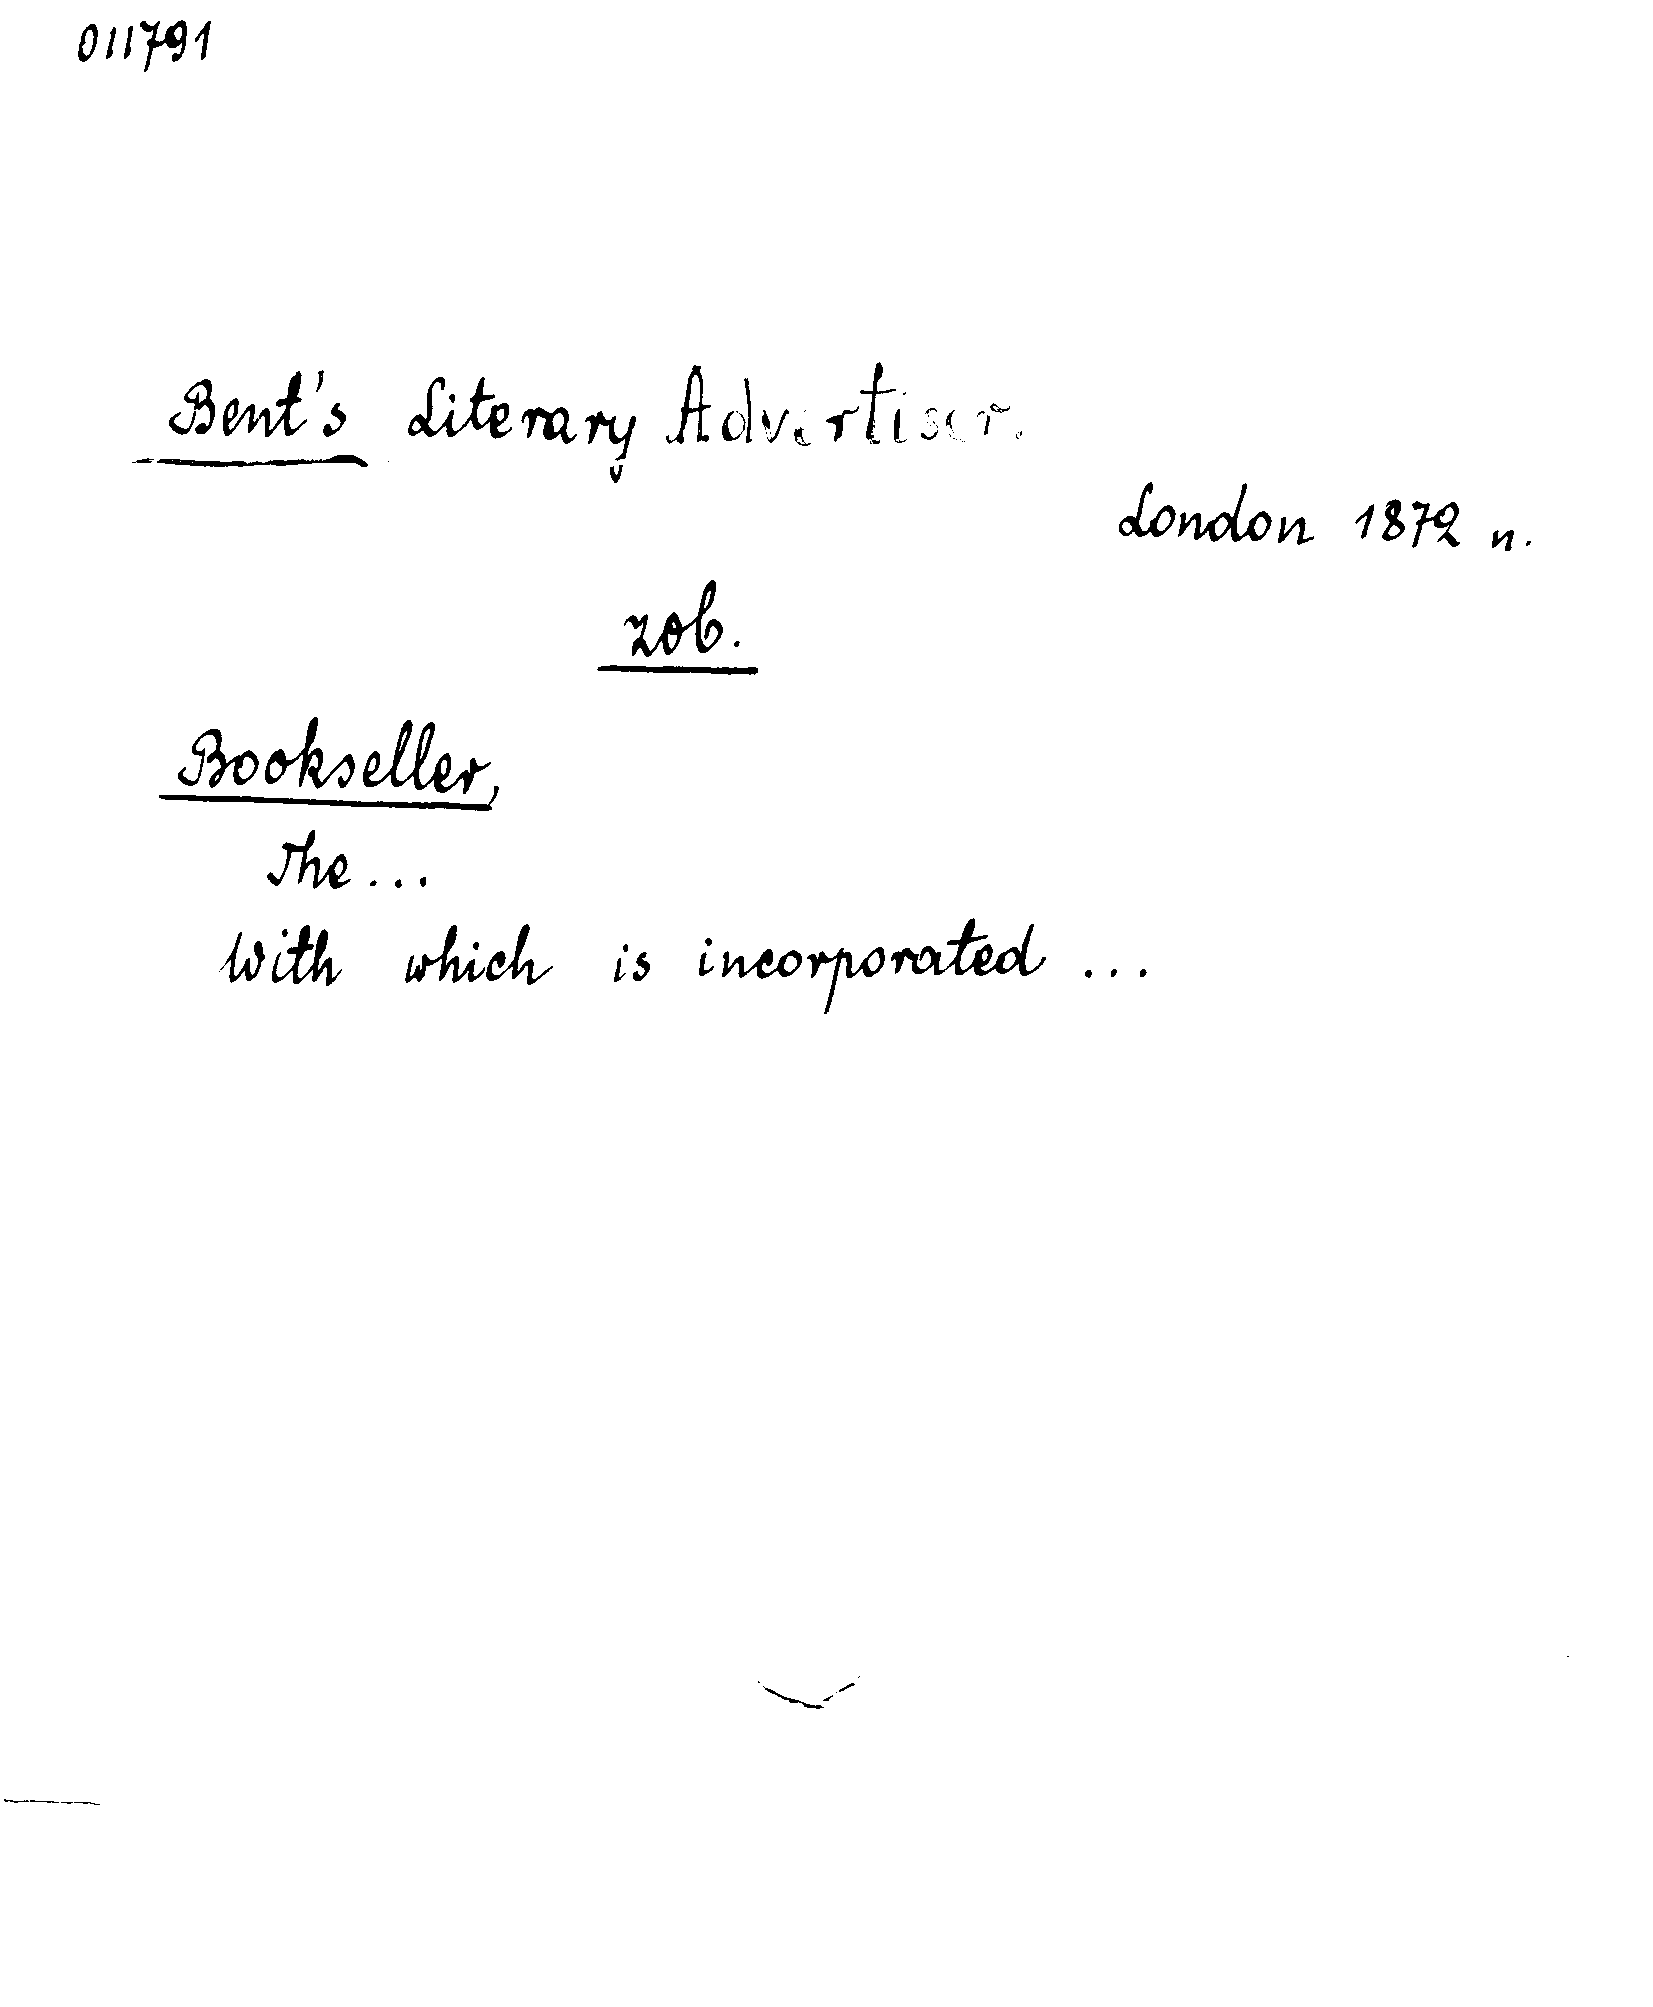 011791
Bent's Literary Advertiser.
London 1872 n.
zob.
Bookseller,
The...
With which is incorporated ...